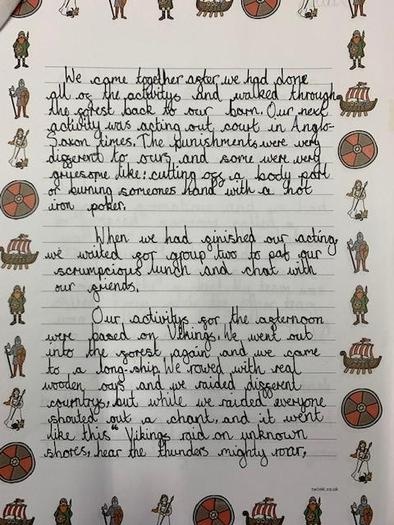 We came together after we had done
all of the activitys and walked through
the forest back to our barn. Our next
activity was acting out court in Anglo-
Saxon times. The punishments were very
different to ours and some were very
gruesome like: cutting off a body part
or burning someones hand with a hot
iron poker.
When we had finished our acting
we waited for group two to eat our
scrumpcious lunch and chat with
our friends.
Our activitys for the afternoon
were based on Vikings. We went out
into the forest again and we came
to a long-ship. We rowed with real
wooden ours and we raided different
countrys, but while we raided everyone
shouted out a chant, and it went
like this " Vikings raid on unknown
shores, hear the thunders mighty roar,
twinkl.co.uk